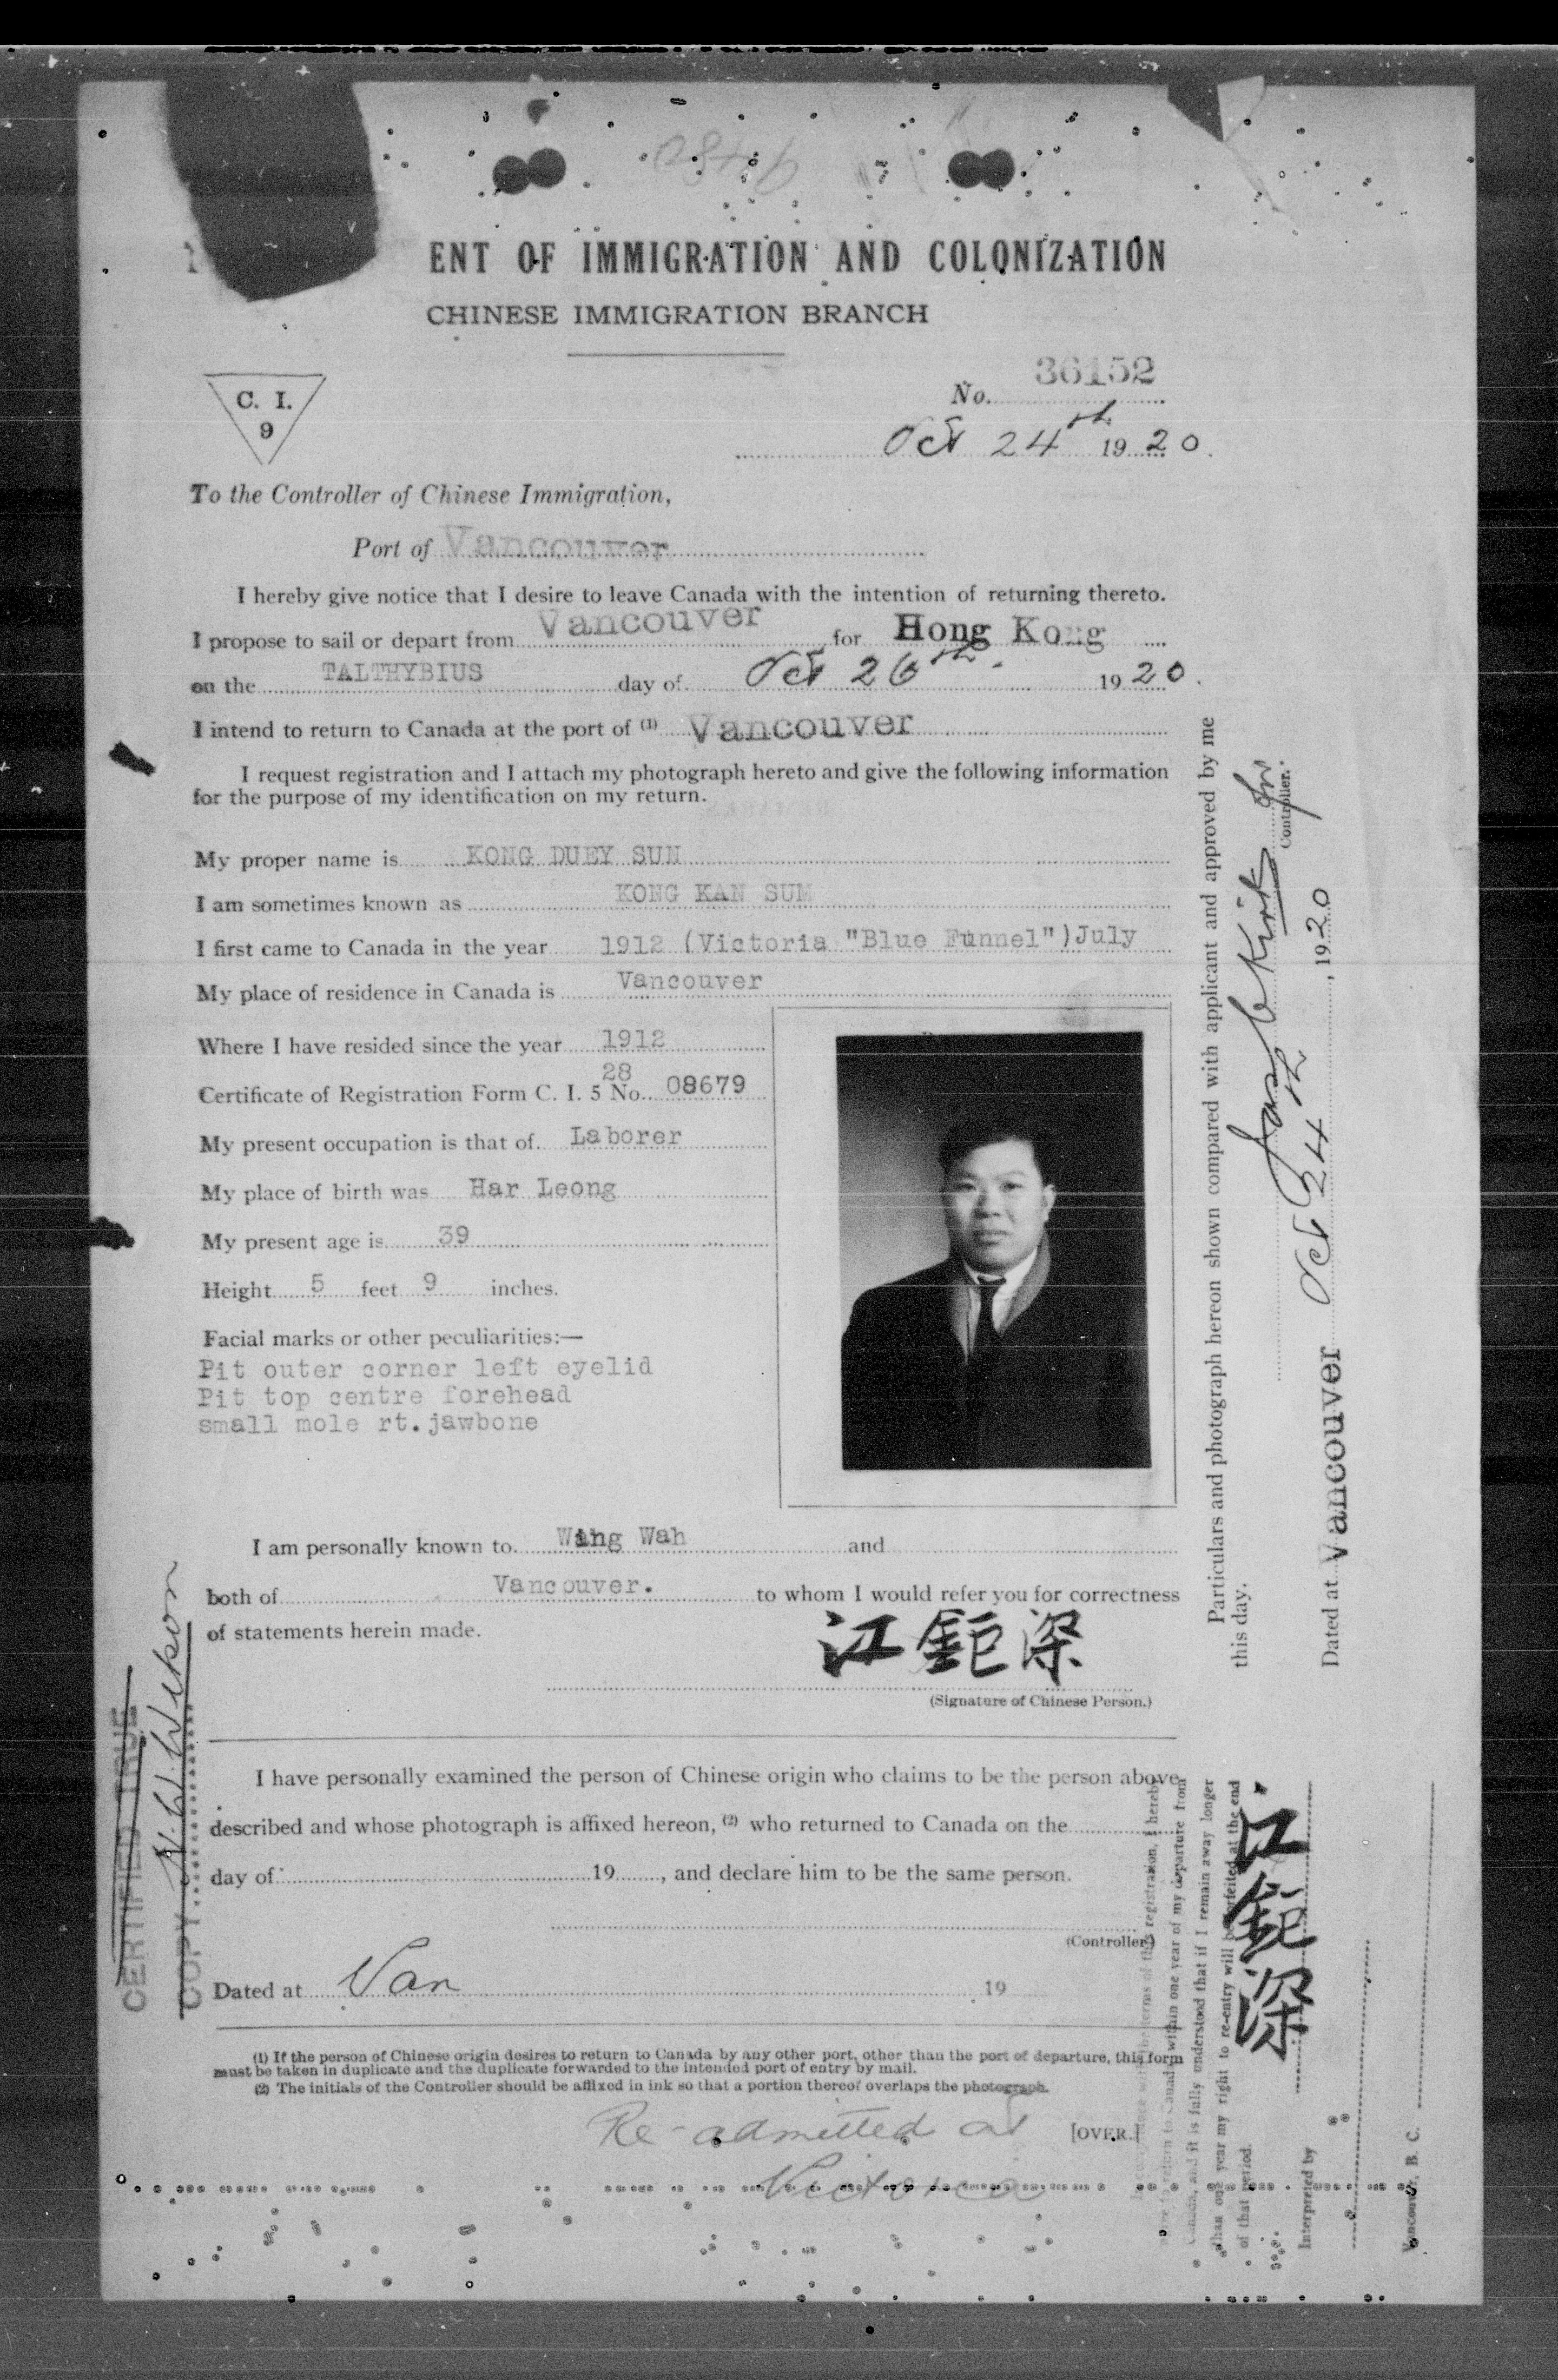 ENT OF IMMIGRATION AND COLONIZATION
CHINESE IMMIGRATION BRANCH
C. I.
9
No. 36152
Oct 24th 1920.
To the Controller of Chinese Immigration,
Port of Vancouver
I hereby give notice that I desire to leave Canada with the intention of returning thereto.
I propose to sail or depart from Vancouver for Hong Kong
on the TALTHYBIUS day of Oct 26th. 1920.
I intend to return to Canada at the port of (1) Vancouver
I request registration and I attach my photograph hereto and give the following information
for the purpose of my identification on my return.
My proper name is KONG DUEY SUN
I am sometimes known as KONG KAN SUM
I first came to Canada in the year 1912 (Victoria "Blue Funnel")July
My place of residence in Canada is Vancouver
Where I have resided since the year 1912
28
Certificate of Registration Form C. I. 5 No. 08679
My present occupation is that of Laborer
My place of birth was Har Leong
My present age is 39
Height 5 feet 9 inches.
Facial marks or other peculiarities:—
Pit outer corner left eyelid
Pit top centre forehead
small mole rt.jawbone
I am personally known to Wing Wah and
both of Vancouver. to whom I would refer you for correctness
of statements herein made.
江鉅深
(Signature of Chinese Person.)
I have personally examined the person of Chinese origin who claims to be the person above
described and whose photograph is affixed hereon, (2) who returned to Canada on the
day of 19, and declare him to be the same person.
(Controller)
Dated at Van 19
(1) If the person of Chinese origin desires to return to Canada by any other port, other than the port of departure, this form
must be taken in duplicate and the duplicate forwarded to the intended port of entry by mail.
(2) The initials of the Controller should be affixed in ink so that a portion thereof overlaps the photograph.
[OVER.]
Re-admitted at
Victoria
Particulars and photograph hereon shown compared with applicant and approved by me
this day.
Controller.
Dated at Vancouver Oct 24th, 1920
CERTIFIED TRUE
COPY
terms of this registration, I hereby
return to Canada within one year of my departure from
Canada, and it is fully understood that if I remain away longer
than one year my right to re-entry will be forfeited at the end
of that period.
江鉅深
Interpreted by
Vancouver, B. C.